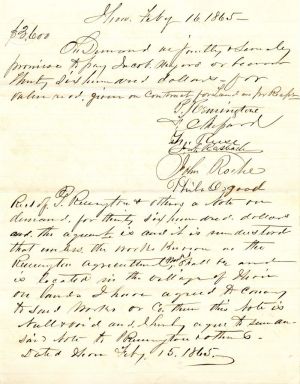 Ilion, Feby 16 1865 -
$3,600
On Demand we jointly & severally
promise to pay Jacob Myers or bearer
Thirty six hundred dollars - for
value recd, given on Contract for Land
P. Remington
John Roche
Philo Osgood
Recd of P. Remington & others a note on
demand, for thirty six hundred dollars
and the agreemt is and it is understood
that unless the Works Known as the
Remington Agricultural Works shall be and
is located in the village of Ilion
on lands I have agreed to convey
to said Works or Co. then this note is
Null & void and I hereby agree to
said Note to Remington & others -
Dated Ilion Feby. 15. 1865.